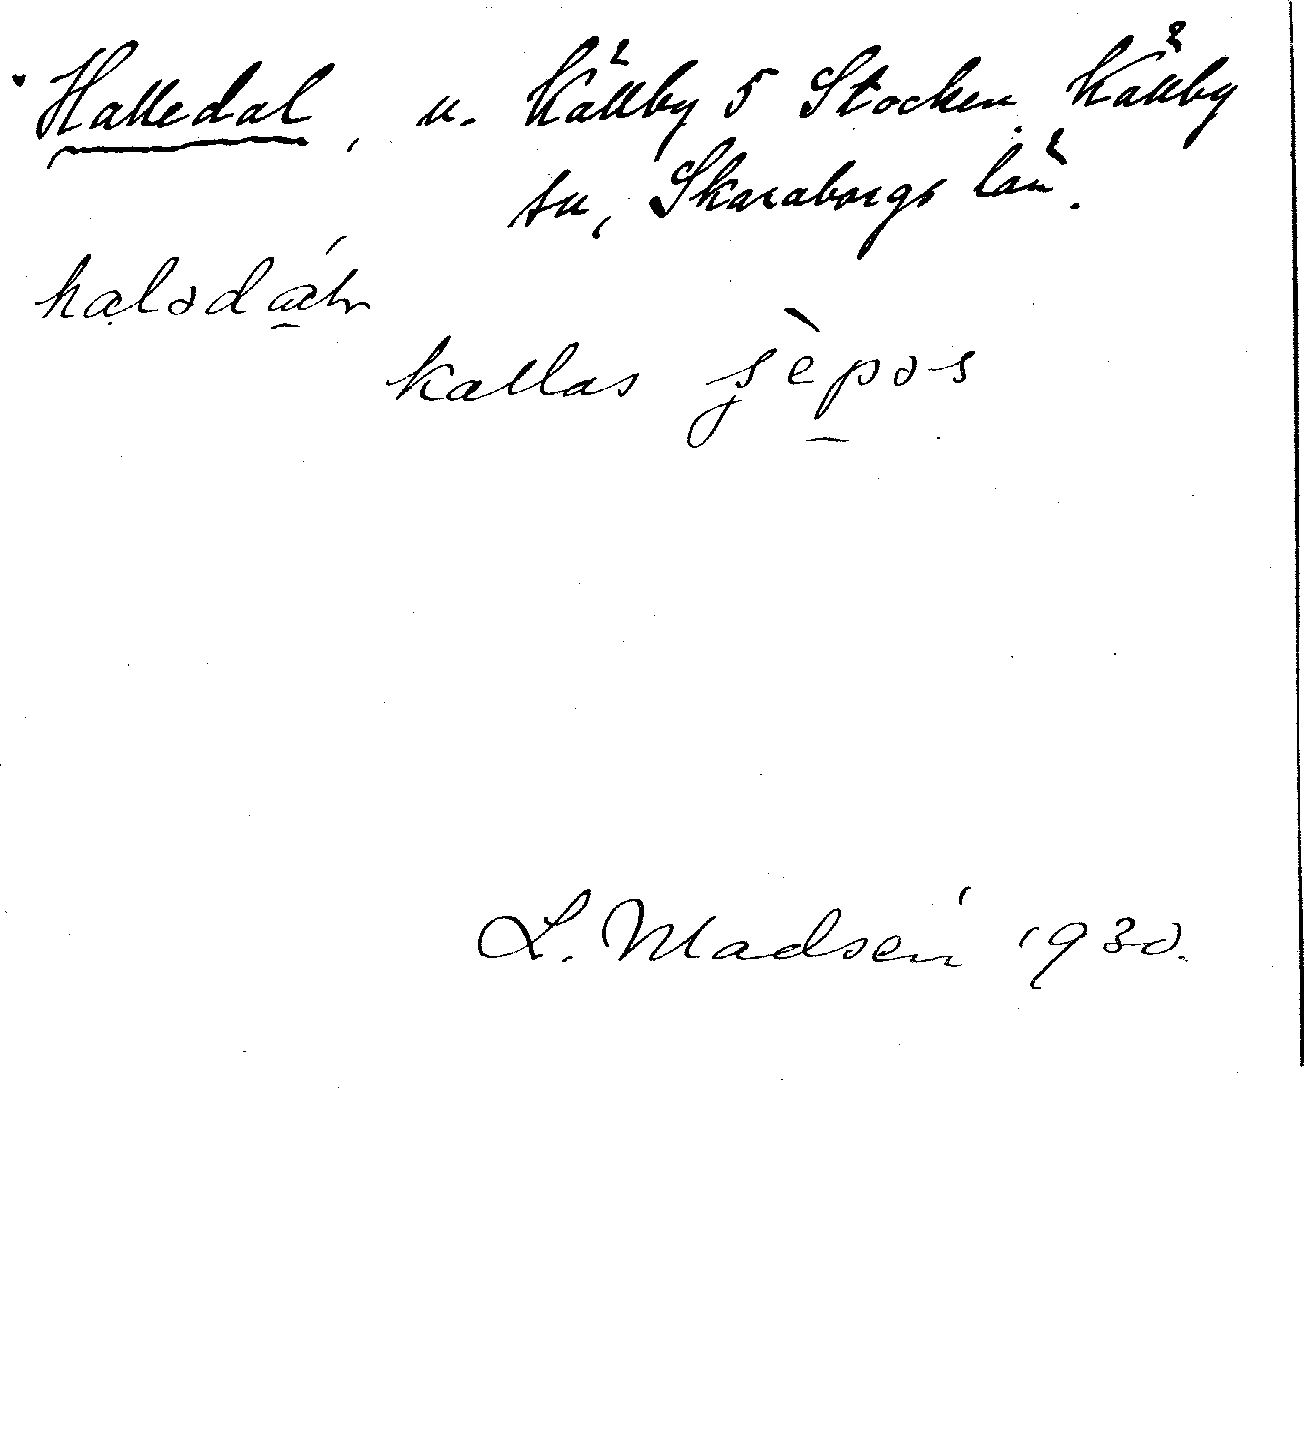 Halledal, u. Källby 5 Stocken Källby
sn, Skaraborgs län.
kallas
L. Madsén 1930.